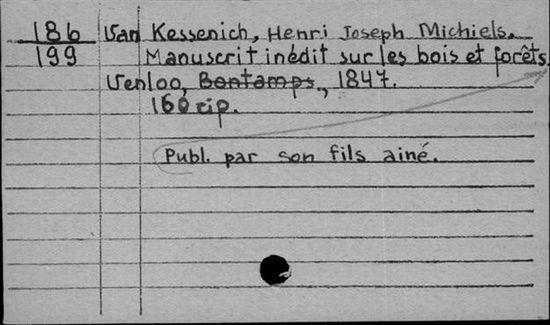 186 Van Kessenich, Henri Joseph Michiels.
199 Manuscrit inédit sur les bois et forêts.
Venloo, Bontamps, 1847.
160 p.
Publ. par son fils ainé.